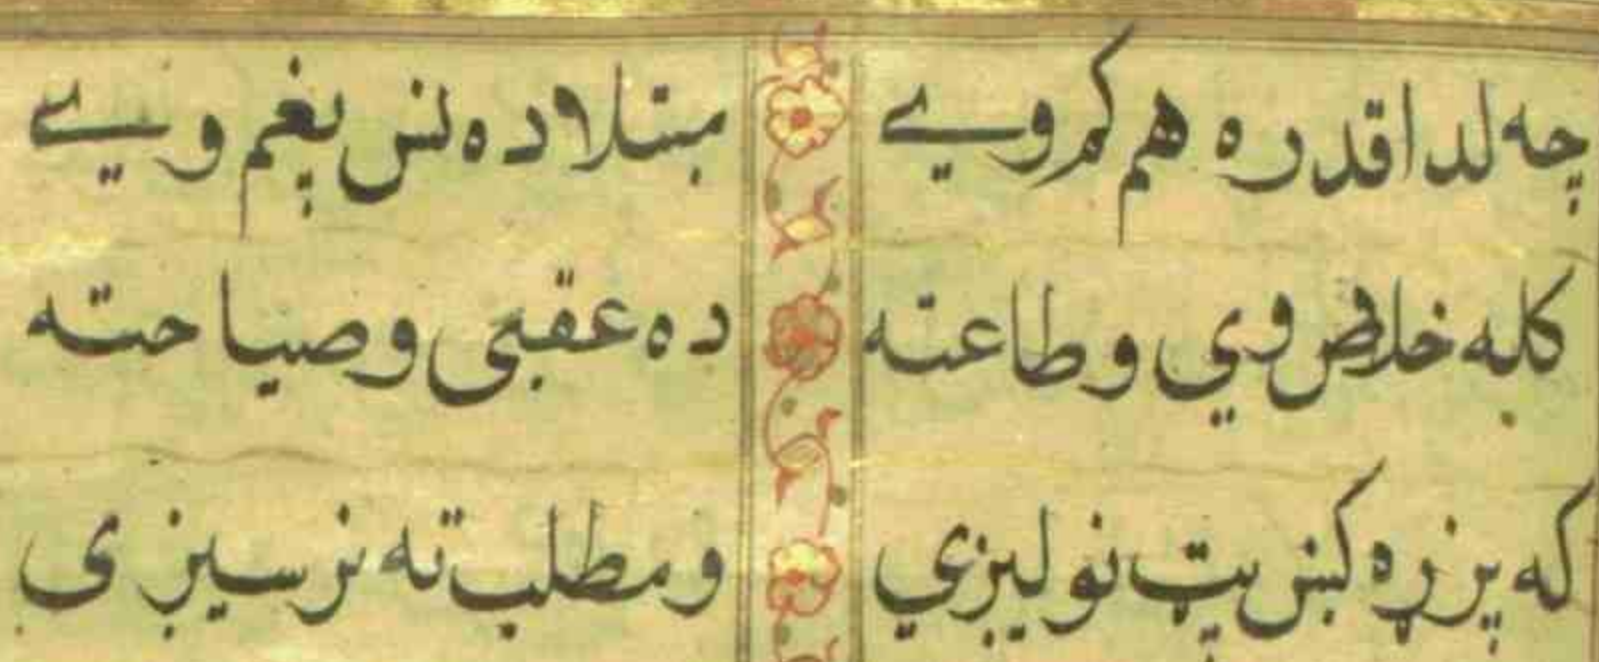 چه لدا قدره هم کم رویے مبتلا ده نس پغم ویے
کله به خلاص وي و طاعته ده عقبی و صیاحته
که پزړه کښ پټ نولیږي و مطلب ته نرسیږی